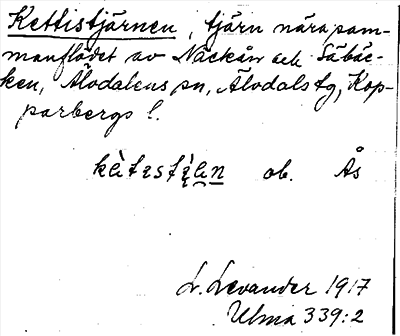 Kettistjärnen, tjärn nära sam-
manflödet av Näckån och Säbäc-
ken, Älvdalens sn, Älvdals tg, Kop-
parbergs l.
ob. Ås
L. Levander 1917
Ulma 339:2